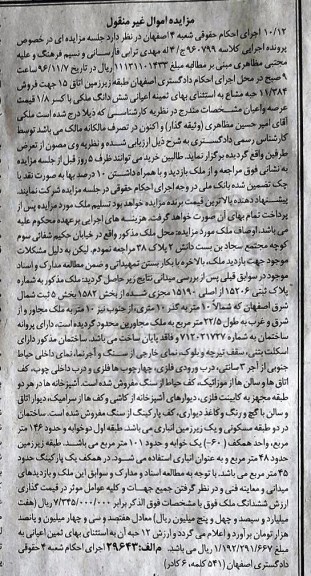 مزایده اموال غیر منقول
۱۰/۱۲ اجرای احکام حقوقی شعبه ۴ اصفهان در نظر دارد جلسه مزایده ای در خصوص
پرونده اجرایی کلاسه ۹۶۰۷۹۹ ج/۴ له مهدی ترابی فارسانی و نسیم فرهنگ و علیه
مجتبی مظاهری مبنی بر مطالبه مبلغ ۱۱۱۳۱۱۰۱۴۳۳ ریال در تاریخ ۹۶/۱۱/۷ ساعت
۹ صبح در محل اجرای احکام دادگستری اصفهان طبقه زیرزمین اتاق ۱۵ جهت فروش
۱۱/۳۸۴ حبه مشاع به استثنای بهای ثمینه اعیانی شش دانگ ملکی با کسر ۱/۸ قیمت
عرصه و اعیان مشخصات مندرج در نظریه کارشناسی که ذیلا درج شده است ملکی
آقای امیر حسین مظاهری (وثیقه گذار) و اکنون در تصرف مالکانه مالک می باشد توسط
کارشناس رسمی دادگستری به شرح ذیل ارزیابی شده و نظریه وی مصون از تعرض
طرفین واقع گردیده برگزار نمایند. طالبین خرید می توانند ظرف ۵ روز قبل از جلسه مزایده
به نشانی فوق مراجعه و از ملک بازدید و با همراه داشتن ۱۰ درصد بها به صورت نقد یا
چک تضمین شده بانک ملی در وجه اجرای احکام حقوقی در جلسه مزایده شرکت نمایند.
پیشنهاد دهنده بالاترین قیمت برنده مزایده خواهد بود تسلیم ملک مورد مزایده پس از
پرداخت تمام بهای آن صورت خواهد گرفت. هزینه های اجرایی برعهده محکوم علیه
می باشد. اوصاف ملک مورد مزایده: محل ملک مذکور واقع در خیابان حکیم شفائی سوم
کوچه مجتمع سجاد بن بست دانش ۲ پلاک ۳۸ مراجعه نمودم. لیکن به دلیل مشکلات
موجود جهت بازدید ملک، بالاخره با یکبار بستن تمهیداتی و ضمن مطالعه مدارک و اسناد
موجود در سوابق قبلی پس از بررسی میدانی نتایج زیر حاصل گردید: ملک مذکور به شماره
پلاک ثبتی ۱۵۲۰۶ از اصلی ۱۵۱۹۰ مجزی شده از بخش ۱۵۸۲ بخش ۵ ثبت شمال
شرق اصفهان که شمالا ۱۰ متر به گذر ۱۰ متری، از جنوب نیز ۱۰ متر به ملک مجاور و از
شرق و غرب به طول ۲۲/۵ متر به ملک مجاورین محدود گردیده است، دارای پروانه
ساختمان به شماره ۷۱۲۰۲۱۷۲۷ و فاقد پایان ساخت می باشد. ساختمان مذکور دارای
اسکلت بتنی، سقف تیرچه و بلوک، نمای خارجی از سنگ و آجرنما، نمای داخلی حیاط
جنوبی از آجر ۳ سانتی، درب ورودی فلزی، چهارچوب ها فلزی و درب داخلی چوب، کف
اتاق ها و سالن ها از موزائیک، کف حیاط از سنگ مفروش شده است. آشپزخانه ها در هر دو
طبقه مجهز به کابینت فلزی، دیوارهای آشپزخانه از کاشی و کف ها از سرامیک، دیوار اتاق
و سالن با گچ و رنگ و کاغذ دیواری، کف پارکینگ از سنگ مفروش شده است. ساختمان
در دو طبقه مسکونی و یک زیرزمین انباری می باشد. طبقه اول دو خوابه و حدود ۱۴۶ متر
مربع، واحد همکف (۶۰-) یک خوابه و حدود ۱۰۱ متر مربع می باشد. طبقه زیرزمین
حدود ۴۸ متر مربع و به عنوان انباری استفاده می شود. در همکف یک پارکینگ حدود
۴۵ متر مربع می باشد. با توجه به مطالعه اسناد و مدارک و سوابق این ملک و بازدیدهای
میدانی و معاینه فنی و در نظر گرفتن جمیع جهات و کلیه عوامل موثر در قیمت گذاری
ارزش ششدانگ ملک فوق با مشخصات فوق الذکر برابر ۷/۳۴۵/۰۰۰/۰۰۰ ریال (هفت
میلیارد و سیصد و چهل و پنج میلیون ریال) معادل هفتصد و سی و چهار میلیون و پانصد
هزار تومان برآورد و اعلام می گردد و ارزش ۱۲ حبه آن به استثنای بهای ثمن اعیانی به
مبلغ ۱/۱۹۲/۲۹۱/۶۶۷ ریال می باشد. م الف: ۲۹۶۴۳ اجرای احکام شعبه ۴ حقوقی
دادگستری اصفهان (۵۴۱ کلمه، ۶ کادر)